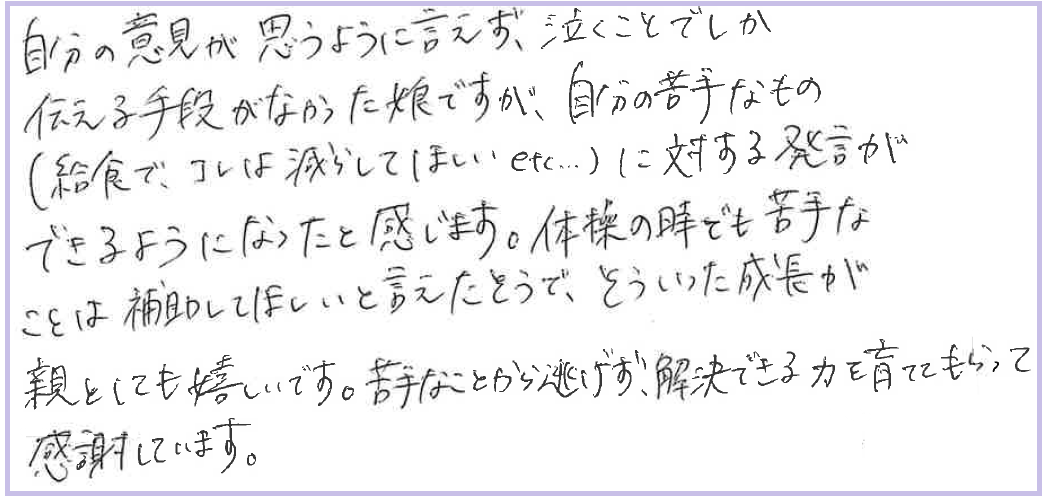 自分の意見が思うように言えず、泣くことでしか
伝える手段がなかった娘ですが、自分の苦手なもの
(給食で、コレは減らしてほしい etc...) に対する発言が
できるようになったと感じます。体操の時でも苦手な
ことは補助してほしいと言えたそうで、そういった成長が
親としても嬉しいです。苦手なことから逃げず、解決できる力を育ててもらって
感謝しています。